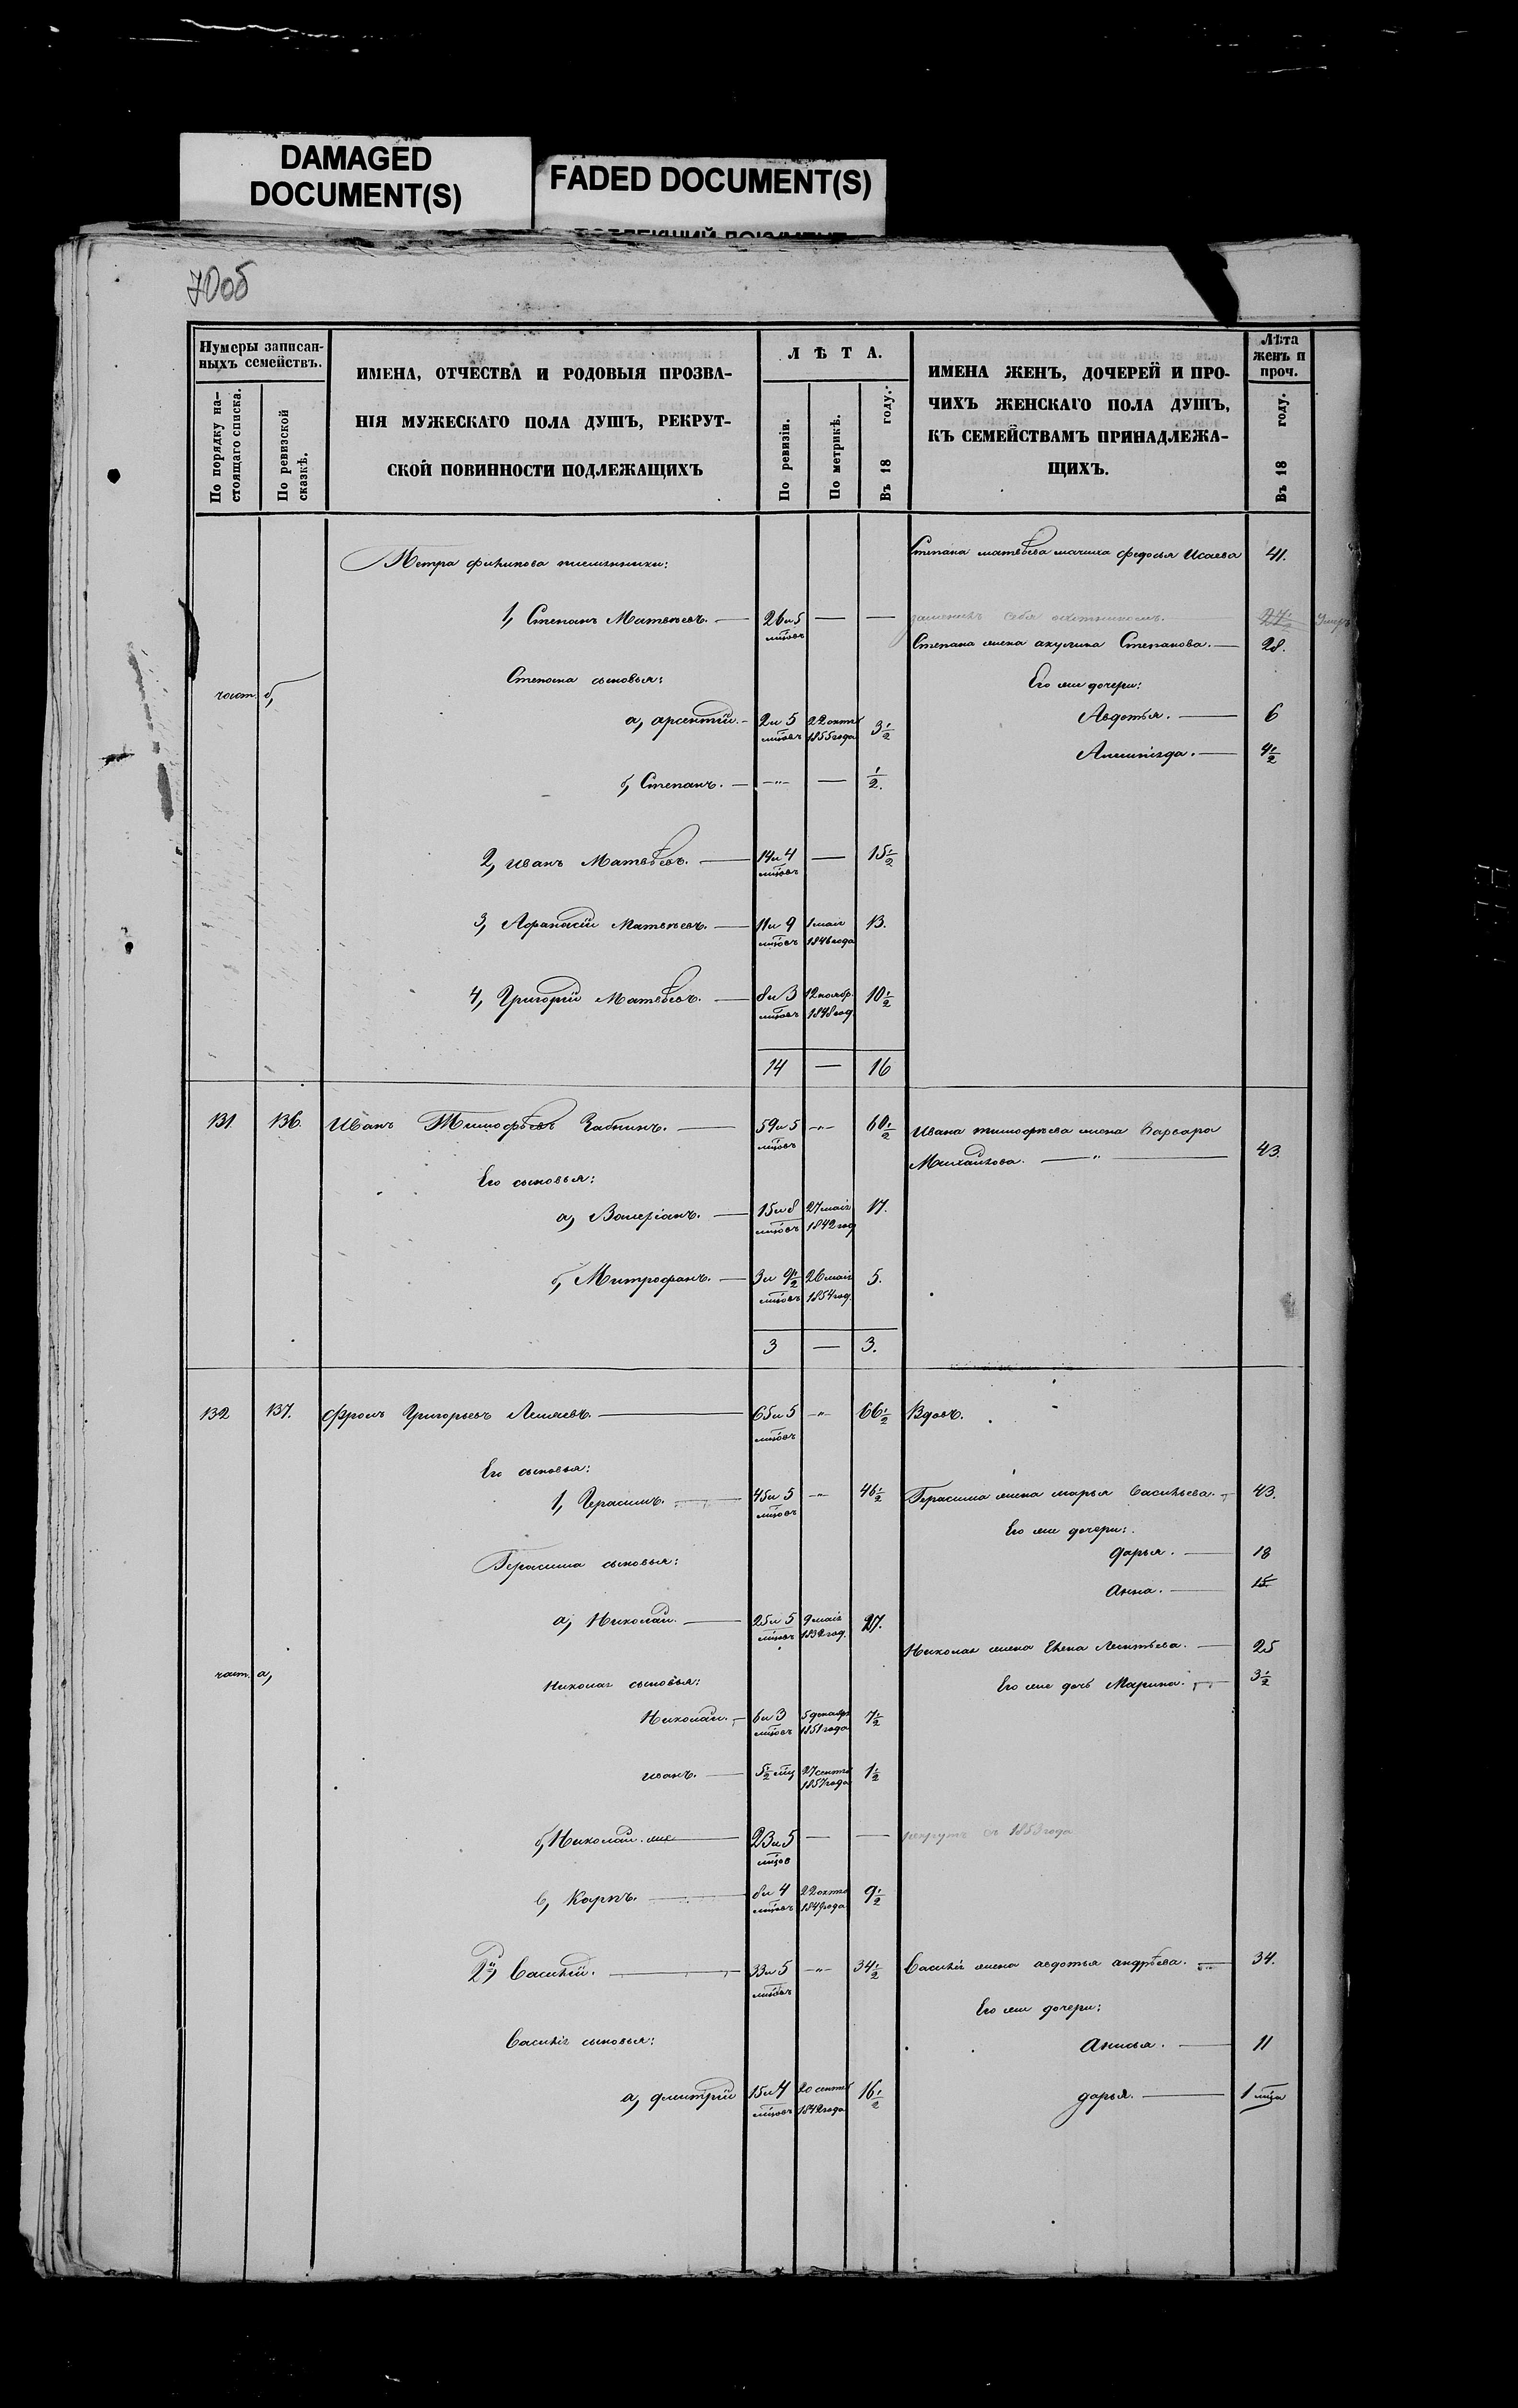 DAMAGED
DOCUMENT(S)
FADED DOCUMENT(S)
70об
Нумеры записан-
ныхъ семействъ.
По порядку на-
стоящаго списка.
По ревизской
сказкѣ.
ИМЕНА, ОТЧЕСТВА И РОДОВЫЯ ПРОЗВА-
НІЯ МУЖЕСКАГО ПОЛА ДУШЪ, РЕКРУТ-
СКОЙ ПОВИННОСТИ ПОДЛЕЖАЩИХЪ
ЛѢТА.
По ревизіи.
По метрикѣ.
Въ 18 году.
ИМЕНА ЖЕНЪ, ДОЧЕРЕЙ И ПРО-
ЧИХЪ ЖЕНСКАГО ПОЛА ДУШЪ,
КЪ СЕМЕЙСТВАМЪ ПРИНАДЛЕЖА-
ЩИХЪ.
Лѣта
женъ и
проч.
Въ 18 году.
Степана матвѣева мачиха Федосья Исаева 41.
Петра филипова племянники:
1, Степанъ Матвѣевъ. — 26 и 5 мцовъ — —
Степана жена акулина Степанова. — 28.
Степана сыновья:
Его же дочери:
част. б,
а, арсентій. — 2 и 5 мцовъ 22 октяб 1855 года 3½
Авдотья. — 6
4½
б, Степанъ. — -"- — ½.
2, иванъ Матвѣевъ. — 14 и 4 мцовъ — 15½
3, Афанасій Матвѣевъ. — 11 и 9 мцовъ 1 маія 1846 года 13.
4, Григорій Матвѣевъ. — 8 и 3 мцовъ 12 ноябр. 1848 год 10½
14 — 16
131 136. Иванъ Тимофѣевъ Забнинъ. — 59 и 5 мцовъ -"- 60½
Ивана тимофѣева жена Варвара
Михайлова. — " — 43.
Его сыновья:
а, Валеріанъ. — 15 и 8 мцовъ 27 маія 1842 год 17.
б, Митрофанъ. — 3 и 9½ мцовъ 26 маія 1854 год. 5.
3 — 3.
132 137. Фролъ Григорьевъ — 65 и 5 мцовъ -"- 66½ Вдовъ.
Его сыновья:
1, Герасимъ. — 45 и 5 мцовъ -"- 46½ Герасима жена марья Васильева. — 43.
Его же дочери:
Герасима сыновья:
дарья. — 18
анна. — 15.
а, Николай. — 25 и 5 мцовъ 9 маія 1832 год. 27.
Николая жена Елена Леонтьева. — 25
част. а,
Николая сыновья:
Его же дочь Марина. — 3½
Николай. — 6 и 3 мцовъ 5 декабр 1851 года 7½
иванъ. — 5½ мц 27 сентя 1857 года 1½
б, Николай. же — 23 и 5 мцов — — рекрутъ съ 1853 года
в, Карпъ. — 8 и 4 мцовъ 22 октя 1849 года 9½
2й, Василій. — 33 и 5 мцовъ -"- 34½ Василія жена авдотья андрѣева. — 34.
Его же дочери:
Василія сыновья:
анисья. — 11
а, дмитрій 15 и 4 мцовъ 20 сентяб 1842 года 16½
дарья. — 1 мца